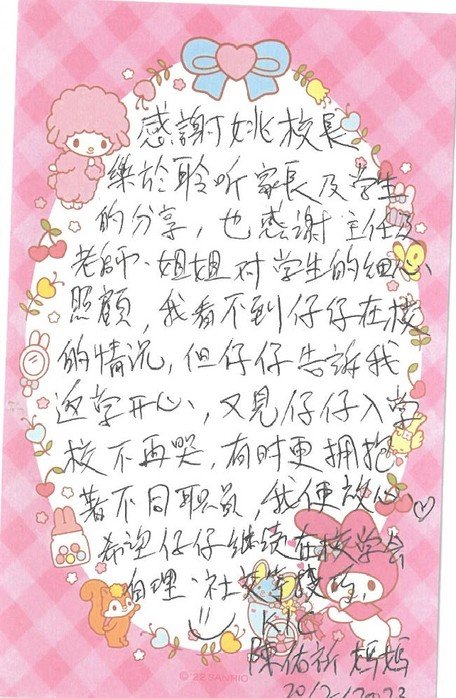 感謝姚校長
樂於聆听家長及学生
的分享，也感謝主任及
老師、姐姐对学生的細心
照顧，我看不到仔仔在校
的情況，但仔仔告訴我
返学开心，又見仔仔入学
校不再哭，有时更拥抱
著不同职員，我便放心
希望仔仔继续在校学会
自理、社交等技巧
K1C
陳佑祈媽媽
20/12/2023
© '22 SANRIO